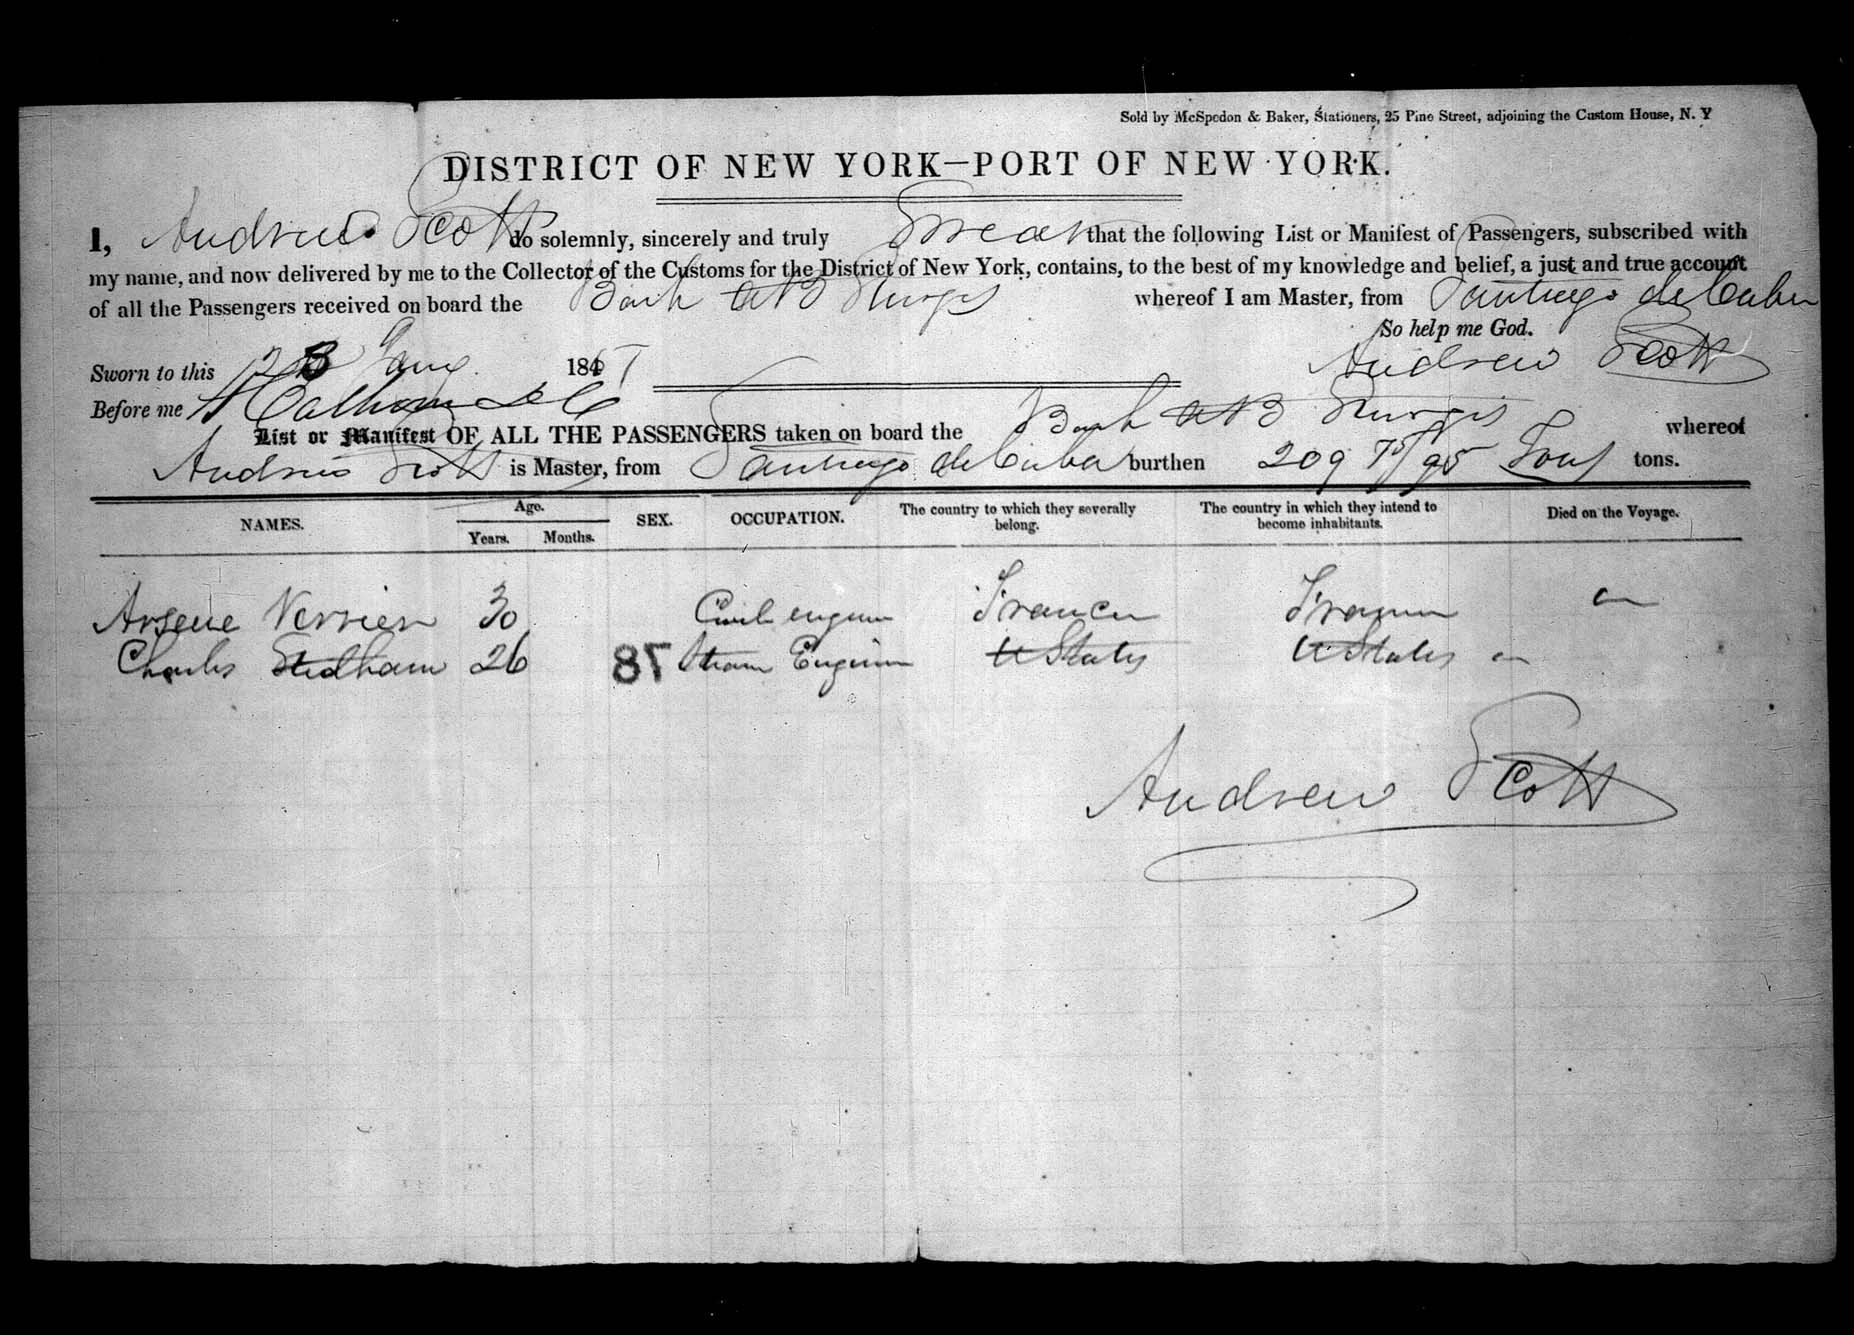 Sold by McSpedon & Baker, Stationers, 25 Pine Street, adjoining the Custom House, N. Y
DISTRICT OF NEW YORK—PORT OF NEW YORK.
I, Andrew Scott do solemnly, sincerely and truly Swear that the following List or Manifest of Passengers, subscribed with
my name, and now delivered by me to the Collector of the Customs for the District of New York, contains, to the best of my knowledge and belief, a just and true account
of all the Passengers received on board the Bark W B Sturgis whereof I am Master, from Santiago de Cuba
So help me God.
Sworn to this 184 Andrew Scott
Before me
List or Manifest OF ALL THE PASSENGERS taken on board the Bark W B Sturgis whereof
Andrew Scott is Master, from Santiago de Cuba burthen 209 /95 Tons tons.
NAMES. Age. Years. Months. SEX. OCCUPATION. The country to which they severally belong. The country in which they intend to become inhabitants. Died on the Voyage.
Arsene Verrier 30 Civil engineer France France
Charles Stedham 26 87 Steam Engineer U States U States
Andrew Scott